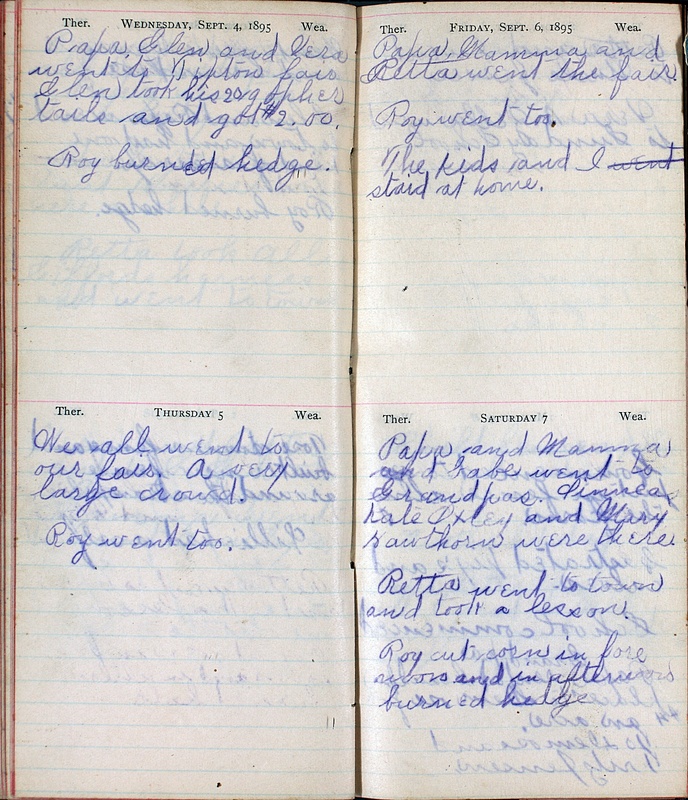 Ther. WEDNESDAY, SEPT. 4, 1895 Wea.
Papa Glen and Vera
went to Tipton fair
Glen took his 20 gopher
tails and got $2.00.
Roy burned hedge.
Ther. THURSDAY 5 Wea.
We all went to
our fair. A very
large crowd.
Roy went too.
Ther. FRIDAY, SEPT. 6, 1895 Wea.
Papa Mamma and
Retta went the fair
Roy went too.
The kids and I went
staid at home.
Ther. SATURDAY 7 Wea.
Papa and Mamma
and babe went to
Grandpas.
Kate Oxley and Mary
Hawthorn were there.
Retta went to town
and took a lesson.
Roy cut corn in fore
noon and in afternoon
burned hedge